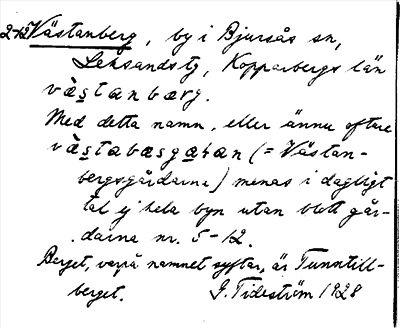 2-12 Västanberg, by i Bjursås sn,
Leksands tg, Kopparbergs län
væ̀stanbærg.
Med detta namn, eller ännu oftare
væ̀stabæsgaɬan (= Västan-
bergsgårdarna) menas i dagligt
tal ej hela byn utan blott går-
darna nr. 5-12.
Berget, varpå namnet syftar, är Tunntill-
berget. G. Tideström 1928